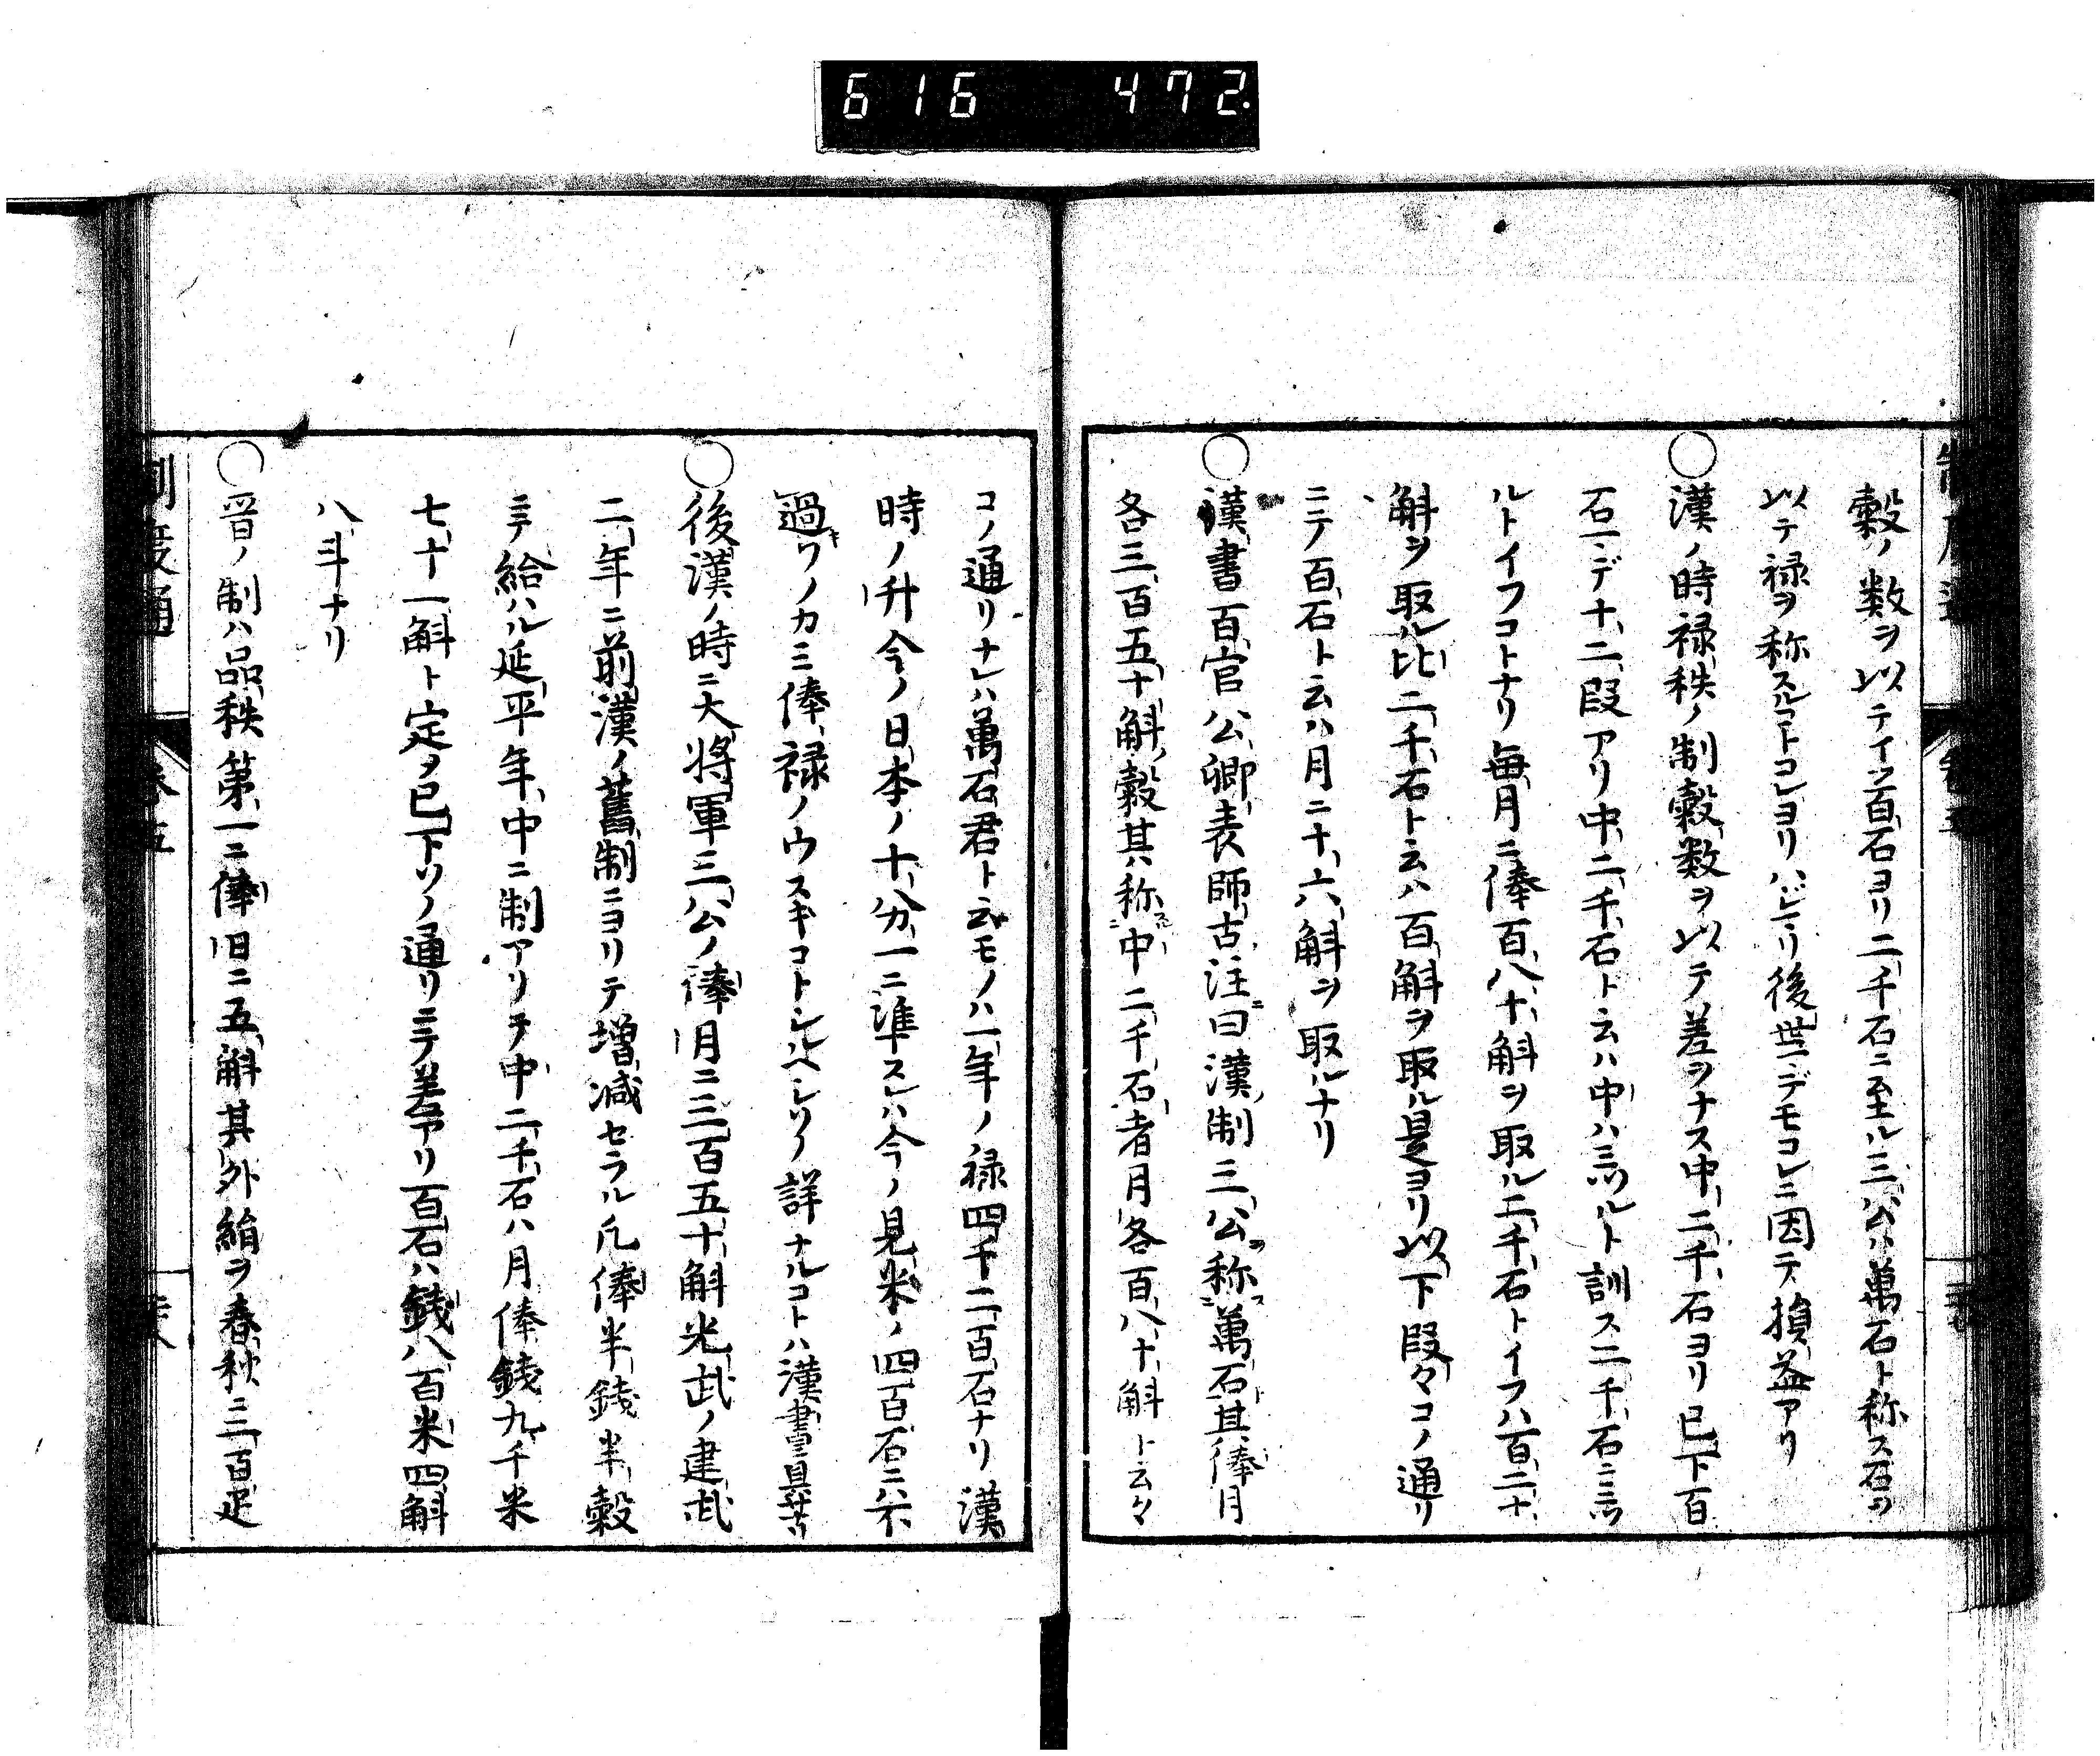 616 472
穀ノ数ヲ以テイヽ百石ヨリ二千石ニ至ル三公ハ萬石ト称ス石ヲ
以テ禄ヲ称スルコトコレヨリハジマリ後世デモコレニ因テ損益アリ
○漢ノ時禄秩ノ制穀数ヲ以テ差ヲナス中二千石ヨリ已下百
石マデ十二段アリ中二千石ト云ハ中ハミツルト訓ス二千石ニミツ
ルトイフコトナリ毎月ニ俸百八十斛ヲ取ル二千石トイフハ百二十
斛ヲ取ル比二千石ト云ハ百斛ヲ取ル是ヨリ以下段々コノ通リ
ニテ百石ト云ハ月ニ十六斛ヲ取ルナリ
○漢書百官公卿表師古注曰漢制三公称萬石其俸月
各三百五十斛穀其称中二千石者月各百八十斛ト云々
コノ通リナレハ萬石君ト云モノハ一年ノ禄四千二百石ナリ漢
時ノ升今ノ日本ノ十分一ニ準スレハ今ノ見米ノ四百石ニハ不
過ワノカミ俸禄ノウスキコトシルヘシソノ詳ナルコトハ漢書ニ具サナリ
○後漢ノ時ニ大将軍三公ノ俸月ニ三百五十斛光武ノ建武
二年ニ前漢ノ舊制ニヨリテ増減セラル凡俸半銭半穀
ニテ給ハル延平年中ニ制アリテ中二千石ハ月俸銭九千米
七十二斛ト定メ已下ソノ通リニテ差アリ百石ハ銭八百米四斛
八斗ナリ
○晋ノ制ハ品秩第一ニ俸日ニ五斛其外絹ヲ春秋三百疋
制度通 巻五